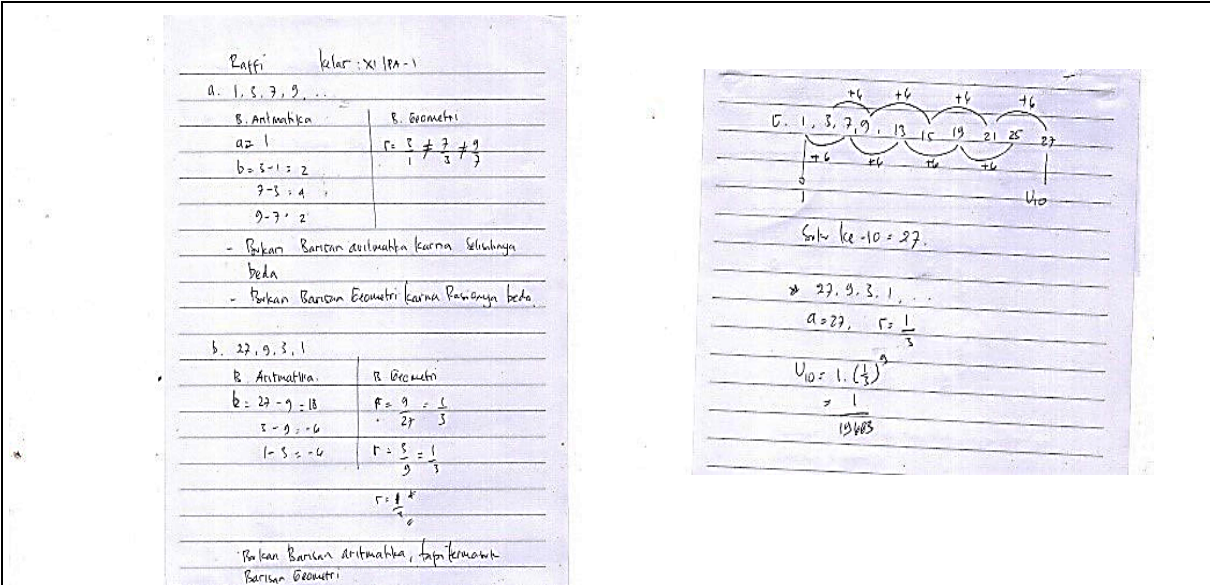 Raffi kelas : XI IPA-1
a. 1, 3, 7, 9, ...
B. Aritmatika B. Geometri
a= 1 r= 3/1 ≠ 7/3 ≠ 9/7
b = 3-1 = 2
7-3 = 4
9-7 = 2
- Bukan Barisan aritmatika karna Selisihnya
beda
- Bukan Barisan Geometri karna Rasionya beda
b. 27, 9, 3, 1
B. Aritmatika. B. Geometri
b = 27 - 9 = 18 r = 9/27 = 1/3
3 - 9 = -6
1 - 3 = -4 r = 3/9 = 1/3
r =
Bukan Barisan aritmatika, tapi termasuk
Barisan Geometri
+6 +6 +6 +6
c. 1, 3, 7, 9, 13 15 19 21 25 27
+6 +6 +6 +6
1 U10
Suku ke-10 = 27.
* 27, 9, 3, 1, ...
a = 27, r = 1/3
U10 = 1. (1/3)^9
= 1/19683